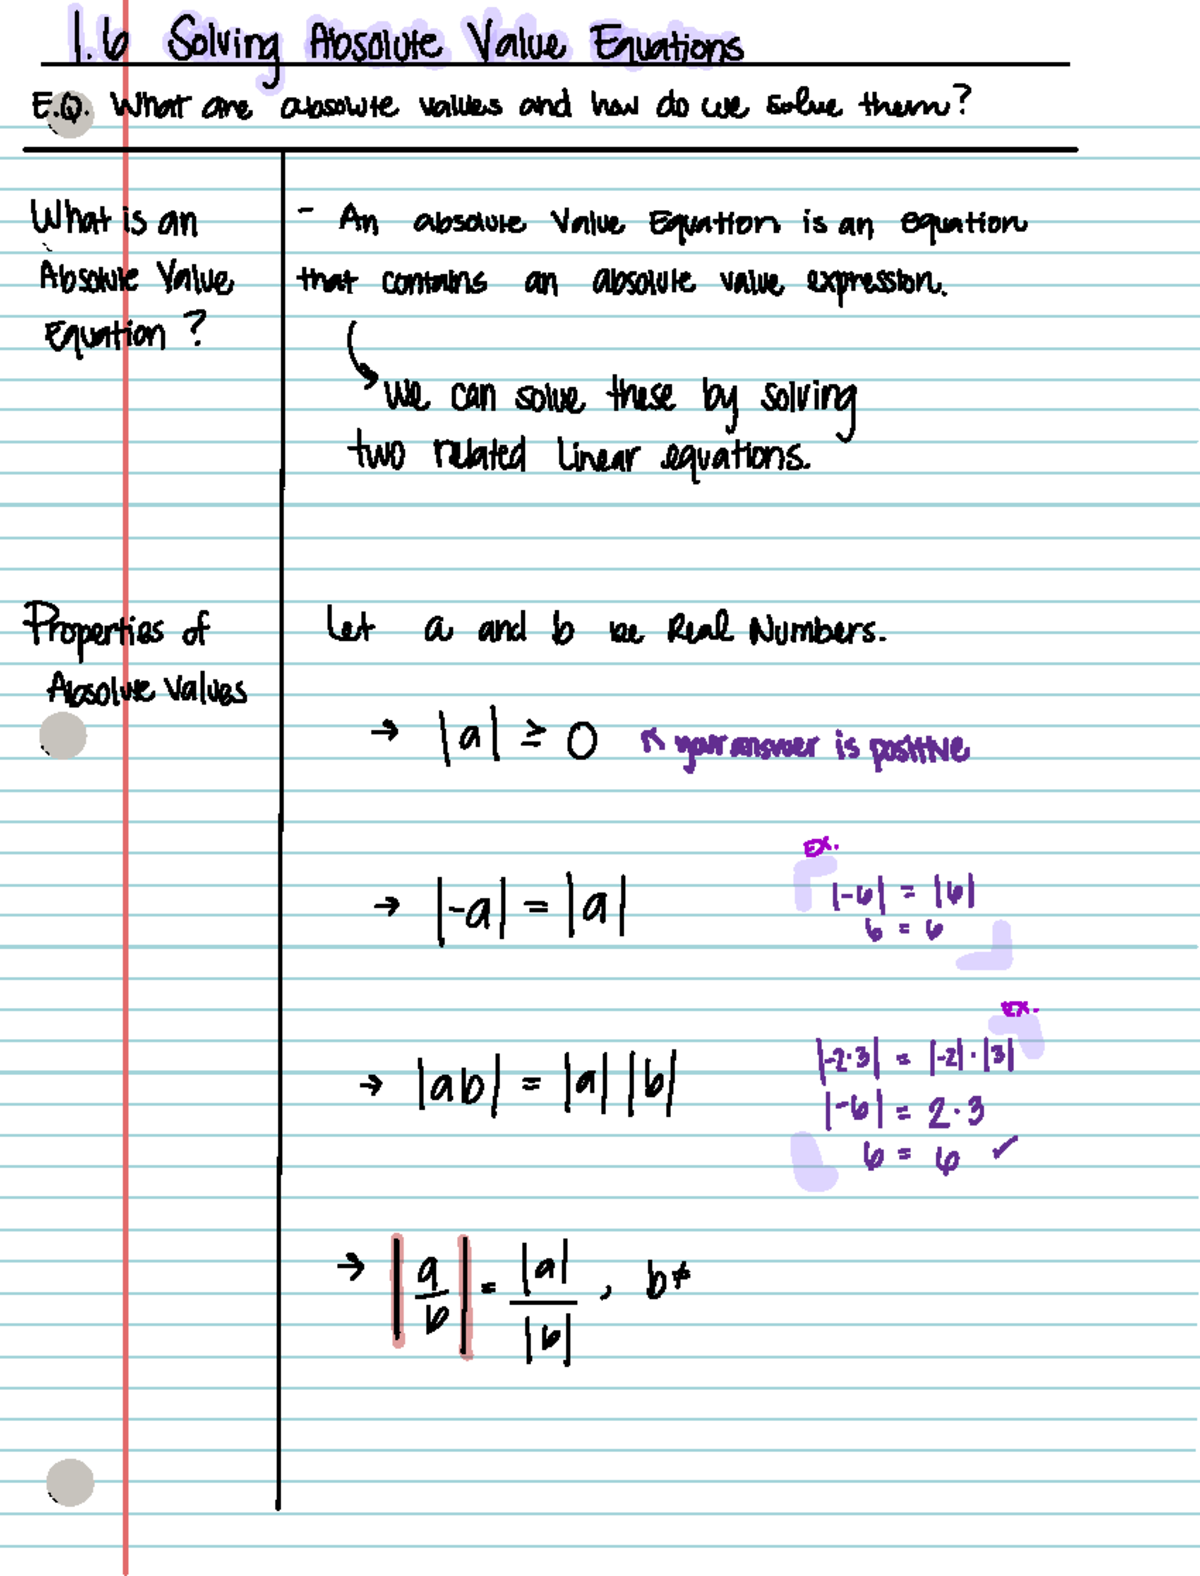 1.6 Solving Absolute Value Equations
E.Q. What are absolute values and how do we solve them?
What is an
Absolute Value
Equation ?
- An absolute Value Equation is an equation
that contains an absolute value expression.
we can solve these by solving
two related linear equations.
Properties of
Absolute Values
Let a and b be Real Numbers.
→ |a| ≥ 0 ↖ your answer is positive
Ex.
→ |-a| = |a|
|-6| = |6|
6 = 6
Ex.
→ |ab| = |a| |b|
|-2·3| = |-2|·|3|
|-6| = 2·3
6 = 6 ✓
→ |a/b| = |a|/|b| , b≠